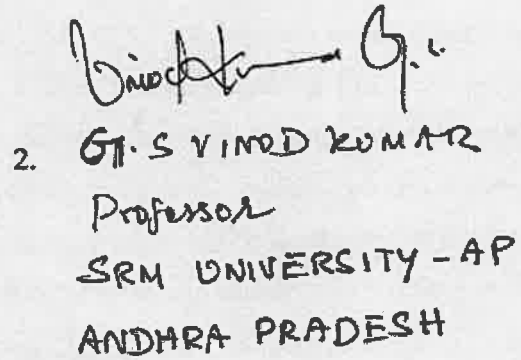 Vinod Kumar G.
2. G. S VINOD KUMAR
Professor
SRM UNIVERSITY - AP
ANDHRA PRADESH